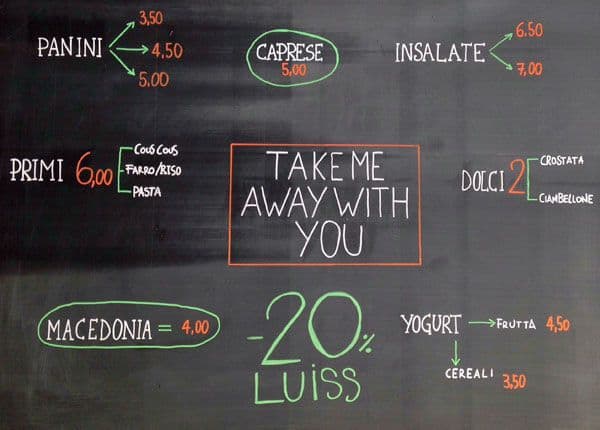 PANINI
3,50
4,50
5,00
CAPRESE
5,00
INSALATE
6.50
7,00
PRIMI 6,00
COUS COUS
FARRO/RISO
PASTA
TAKE ME
AWAY WITH
YOU
DOLCI 2
CROSTATA
CIAMBELLONE
MACEDONIA = 4,00
-20%
LUISS
YOGURT
FRUTTA 4,50
CEREALI 3,50